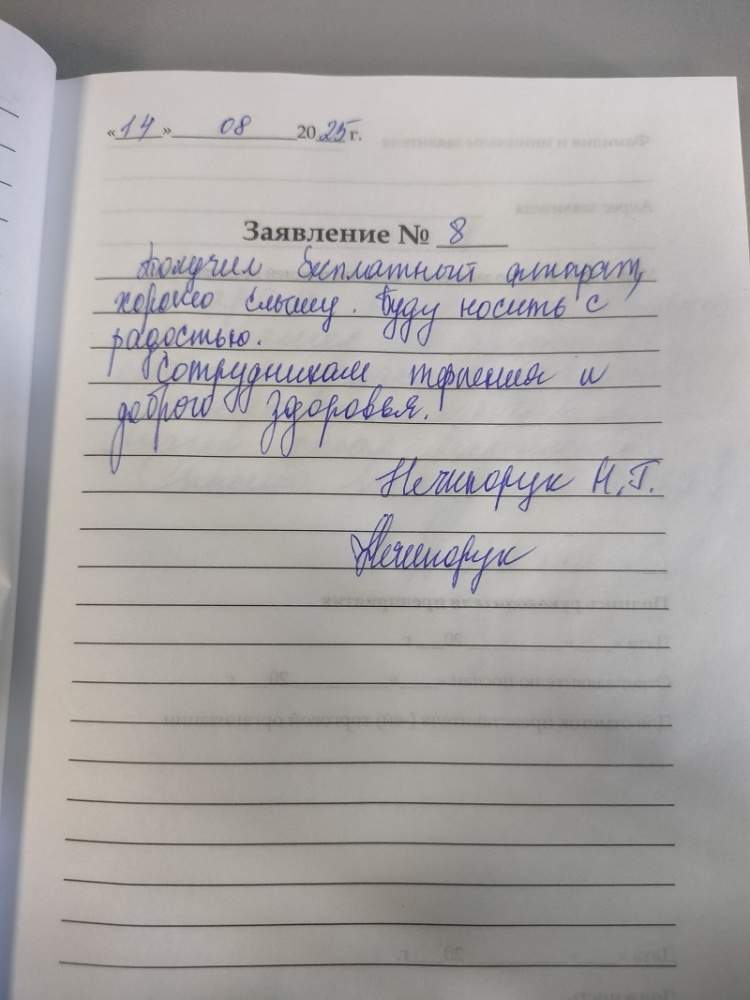 «14» 08 2025 г.
Заявление № 8
Получил бесплатный аппарат,
хорошо слышу. Буду носить с
радостью.
Сотрудникам терпения и
доброго здоровья.
Нечипорук Н.Г.
Нечипорук